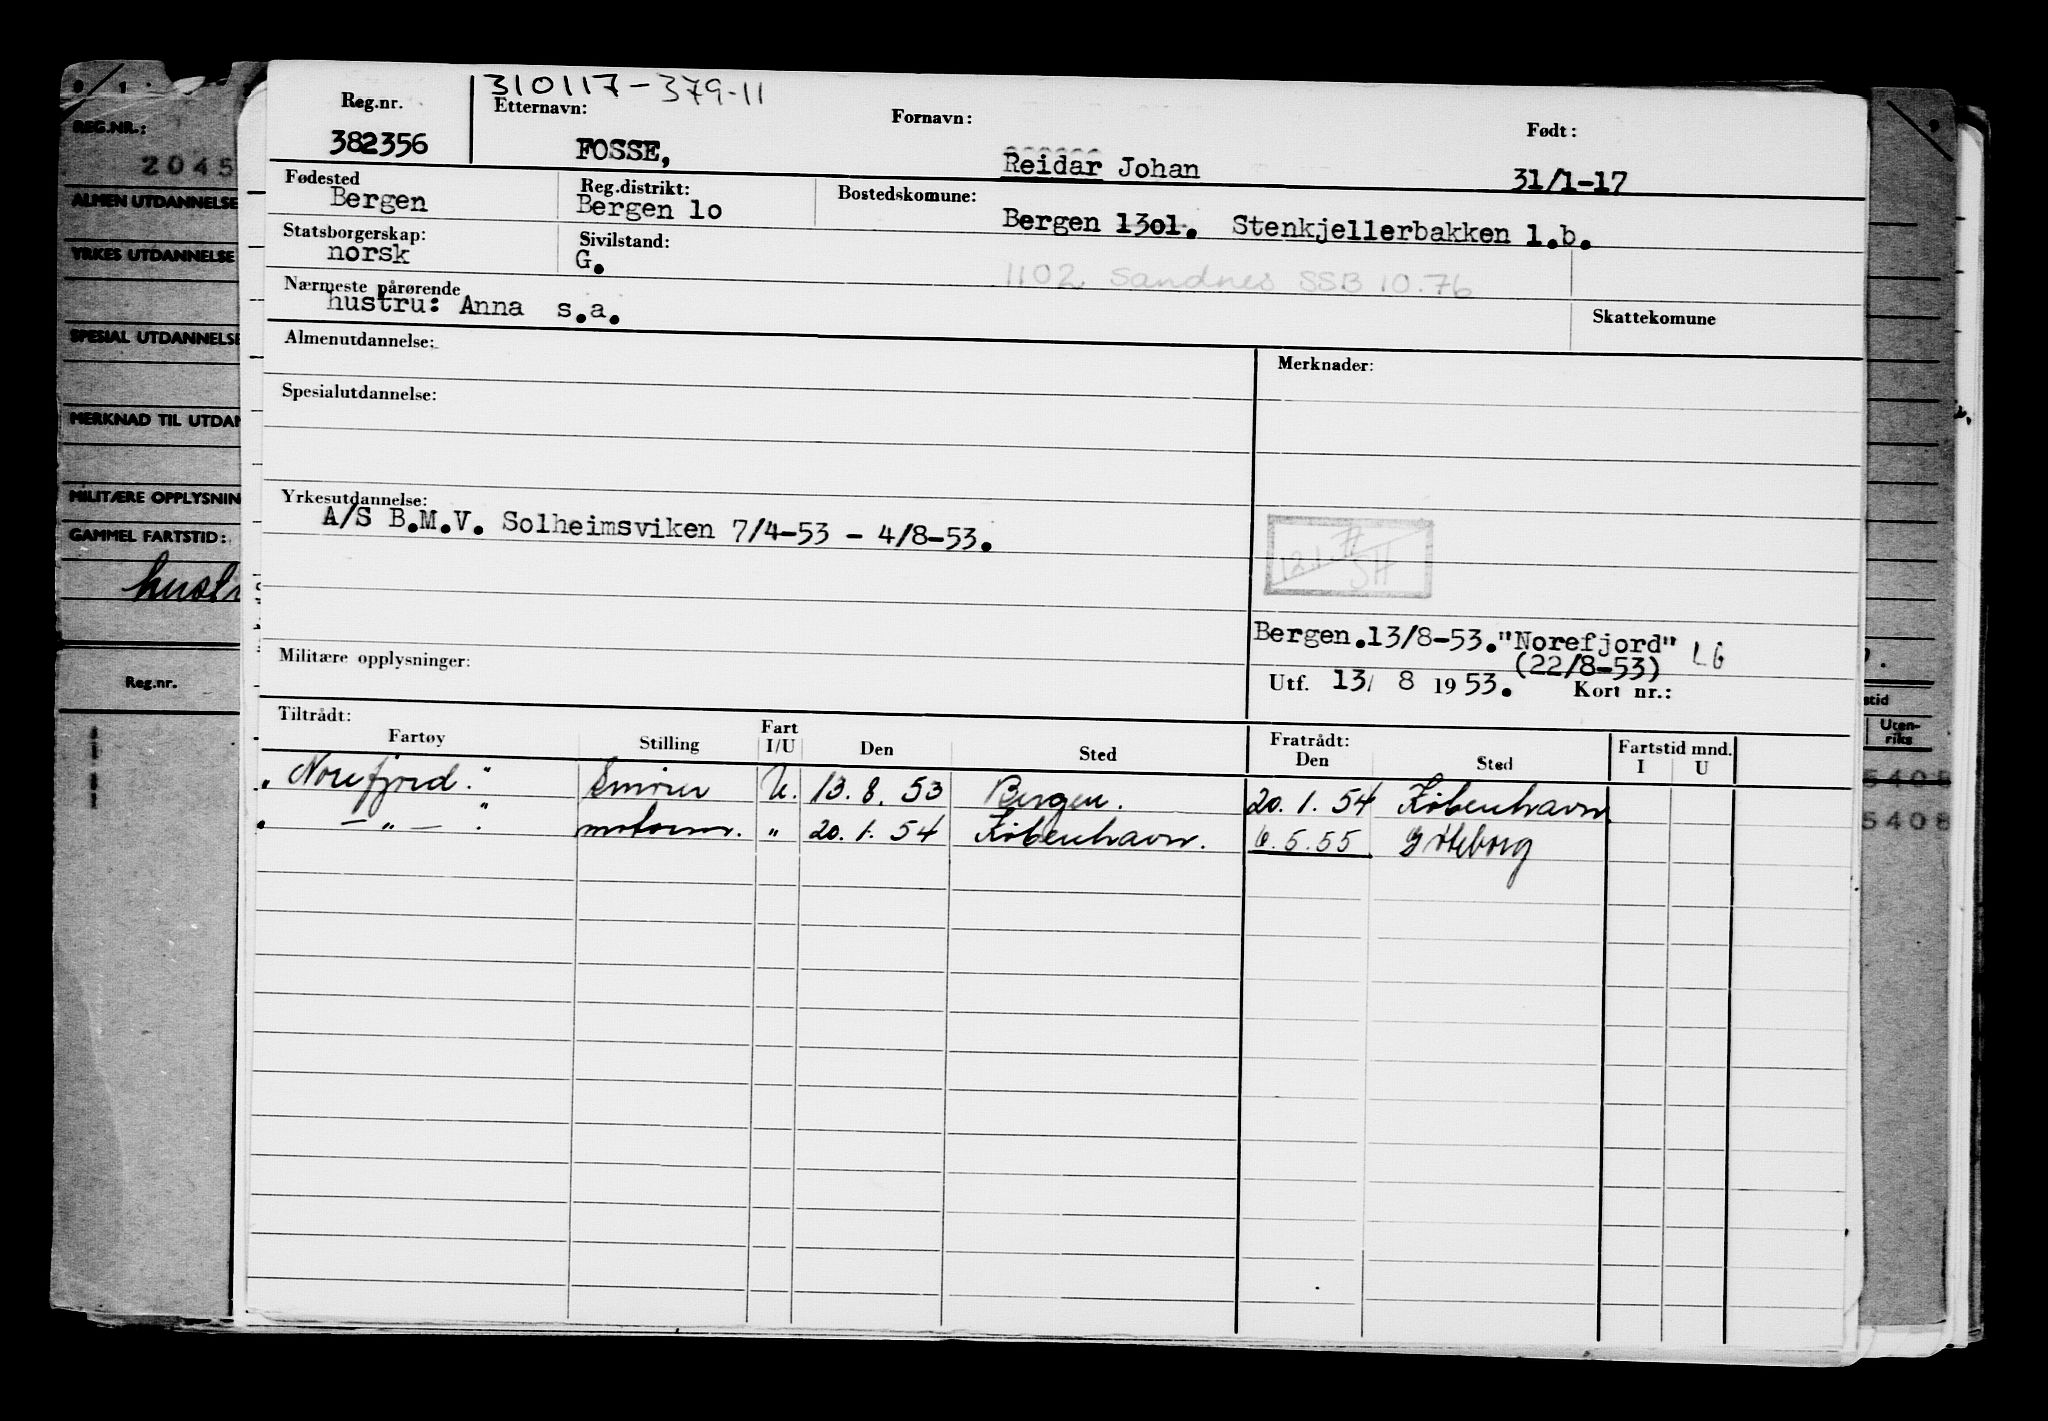 310117-379-11
Reg.nr. Etternavn: Fornavn: Født:
382356 FOSSE, Reidar Johan 31/1-17
Fødested Reg.distrikt: Bostedskomune:
Bergen Bergen 1o Bergen 13o1. Stenkjellerbakken 1.b.
Statsborgerskap: Sivilstand:
norsk G.
1102 Sandnes SSB 10.76
Nærmeste pårørende
hustru: Anna s.a.
Skattekomune
Almenutdannelse: Merknader:
Spesialutdannelse:
Yrkesutdannelse:
A/S B.M.V. Solheimsviken 7/4-53 - 4/8-53.
Bergen.13/8-53."Norefjord" LG
(22/8-53)
Militære opplysninger:
Utf. 13/ 8 1953. Kort nr.:
Tiltrådt: Fratrådt:
Fartøy Stilling Fart I/U Den Sted Den Sted Fartstid mnd. I U
"Norefjord." Smører U. 13.8.53 Bergen. 20.1.54 København
" — " — " motorm. " 20.1.54 København. 6.5.55 Gøteborg
REG.NR.:
2045
ALMEN UTDANNELSE
YRKES UTDANNELSE
SPESIAL UTDANNELSE
MERKNAD TIL UTDAN
MILITÆRE OPPLYSNIN
GAMMEL FARTSTID:
Reg.nr.
stid
Uten-
riks
5408
5408